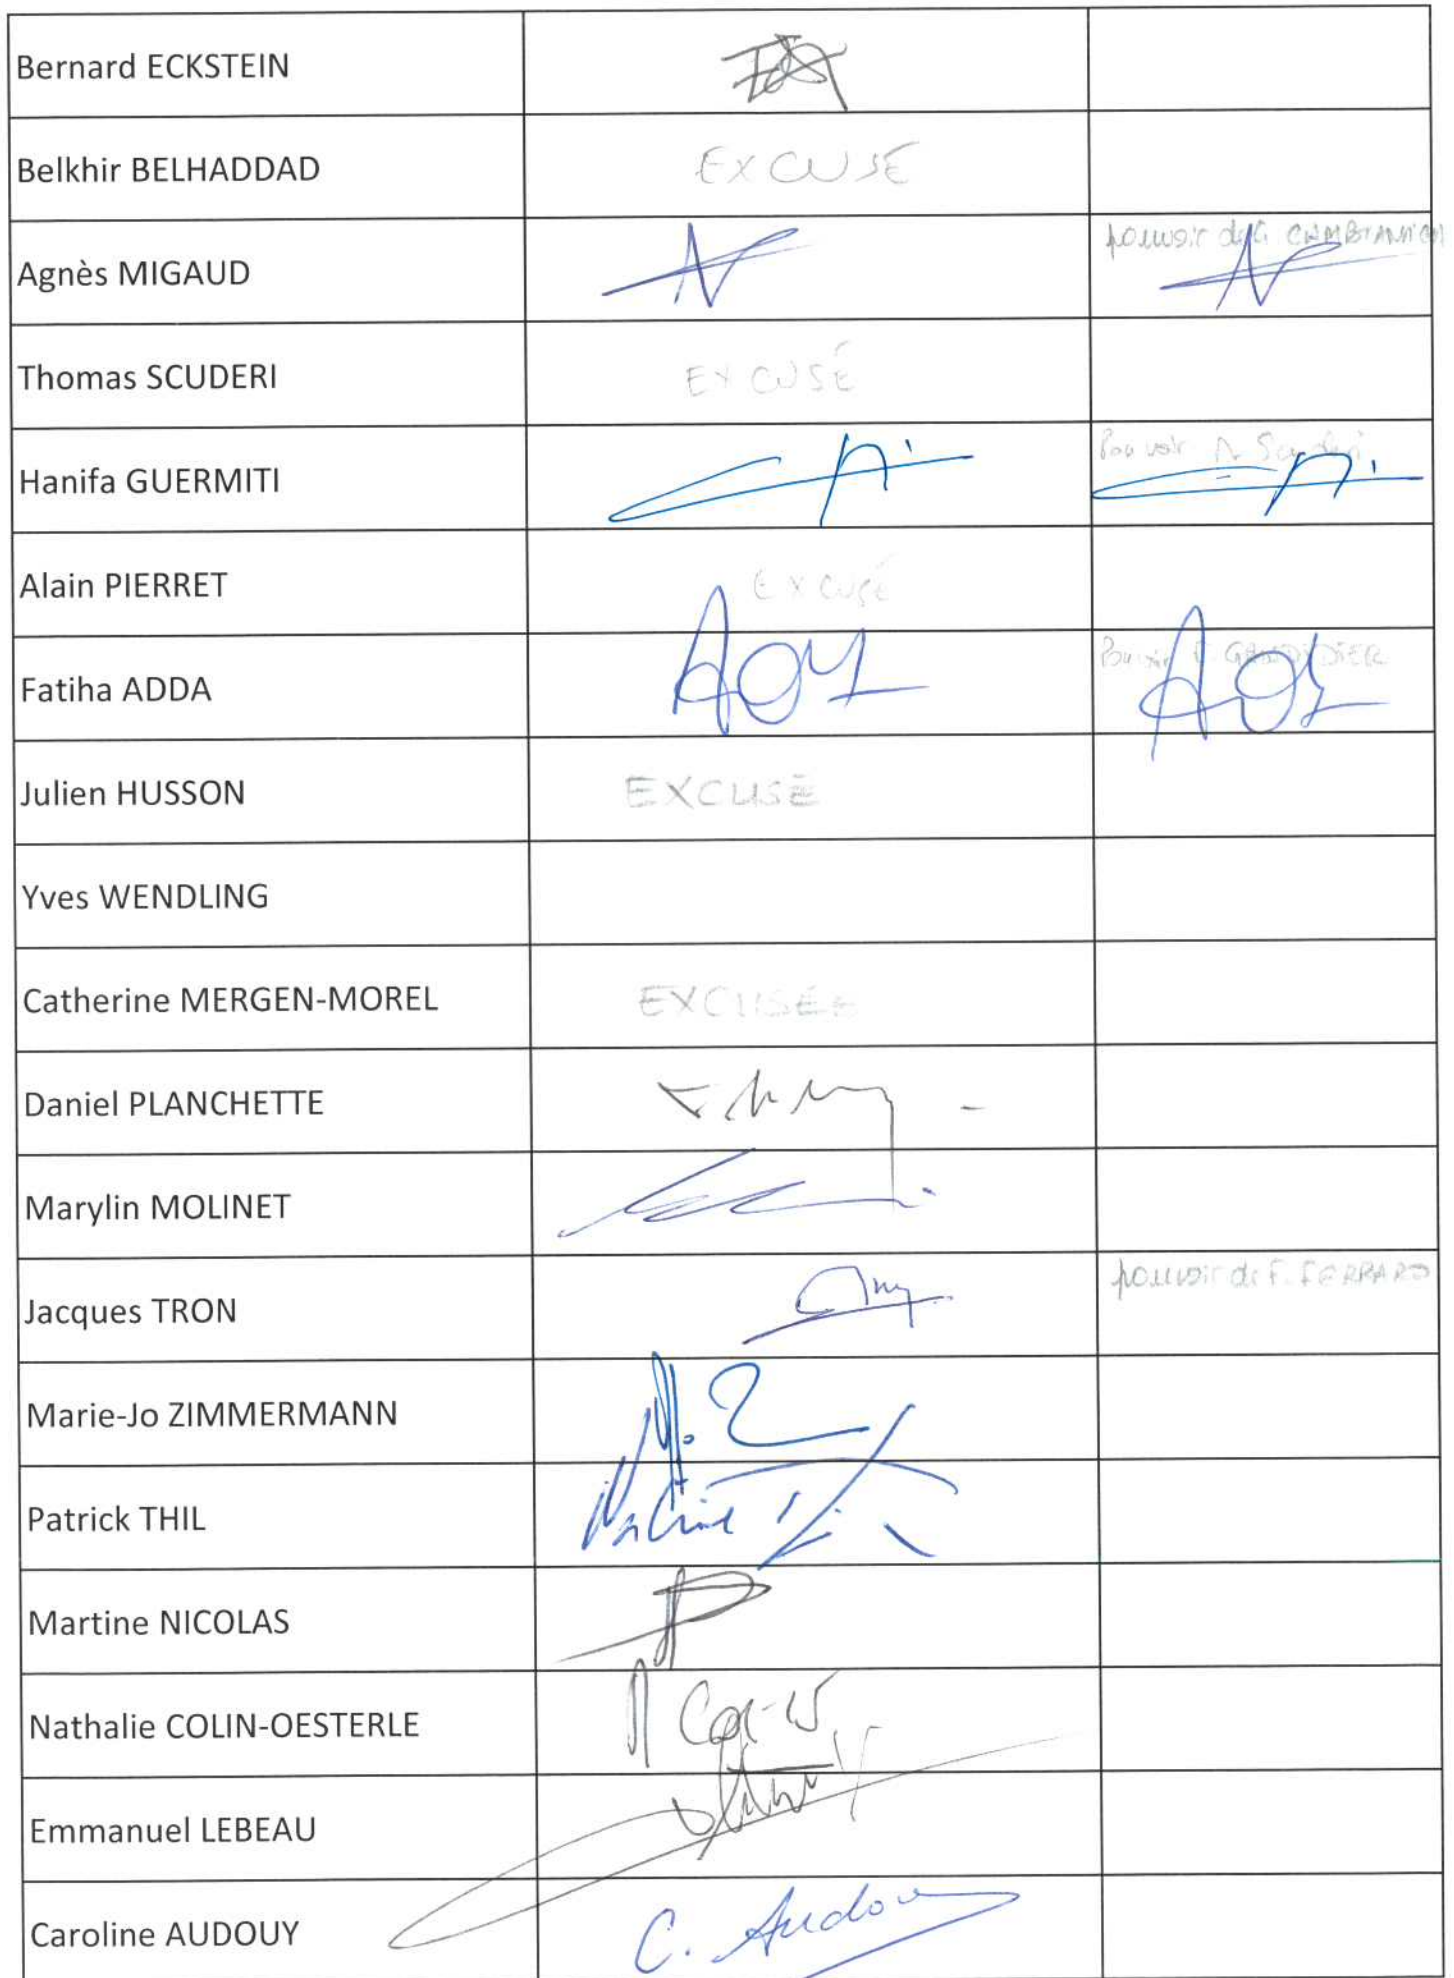 Bernard ECKSTEIN
Belkhir BELHADDAD EXCUSE
Agnès MIGAUD pouvoir de
Thomas SCUDERI EXCUSÉ
Hanifa GUERMITI Pouvoir Scuderi
Alain PIERRET EXCUSÉ
Fatiha ADDA Pouvoir GANDYDIER
Julien HUSSON EXCUSÉ
Yves WENDLING
Catherine MERGEN-MOREL EXCUSÉE
Daniel PLANCHETTE
Marylin MOLINET
Jacques TRON pouvoir de F. FERRARO
Marie-Jo ZIMMERMANN
Patrick THIL
Martine NICOLAS
Nathalie COLIN-OESTERLE
Emmanuel LEBEAU
Caroline AUDOUY C. Audou